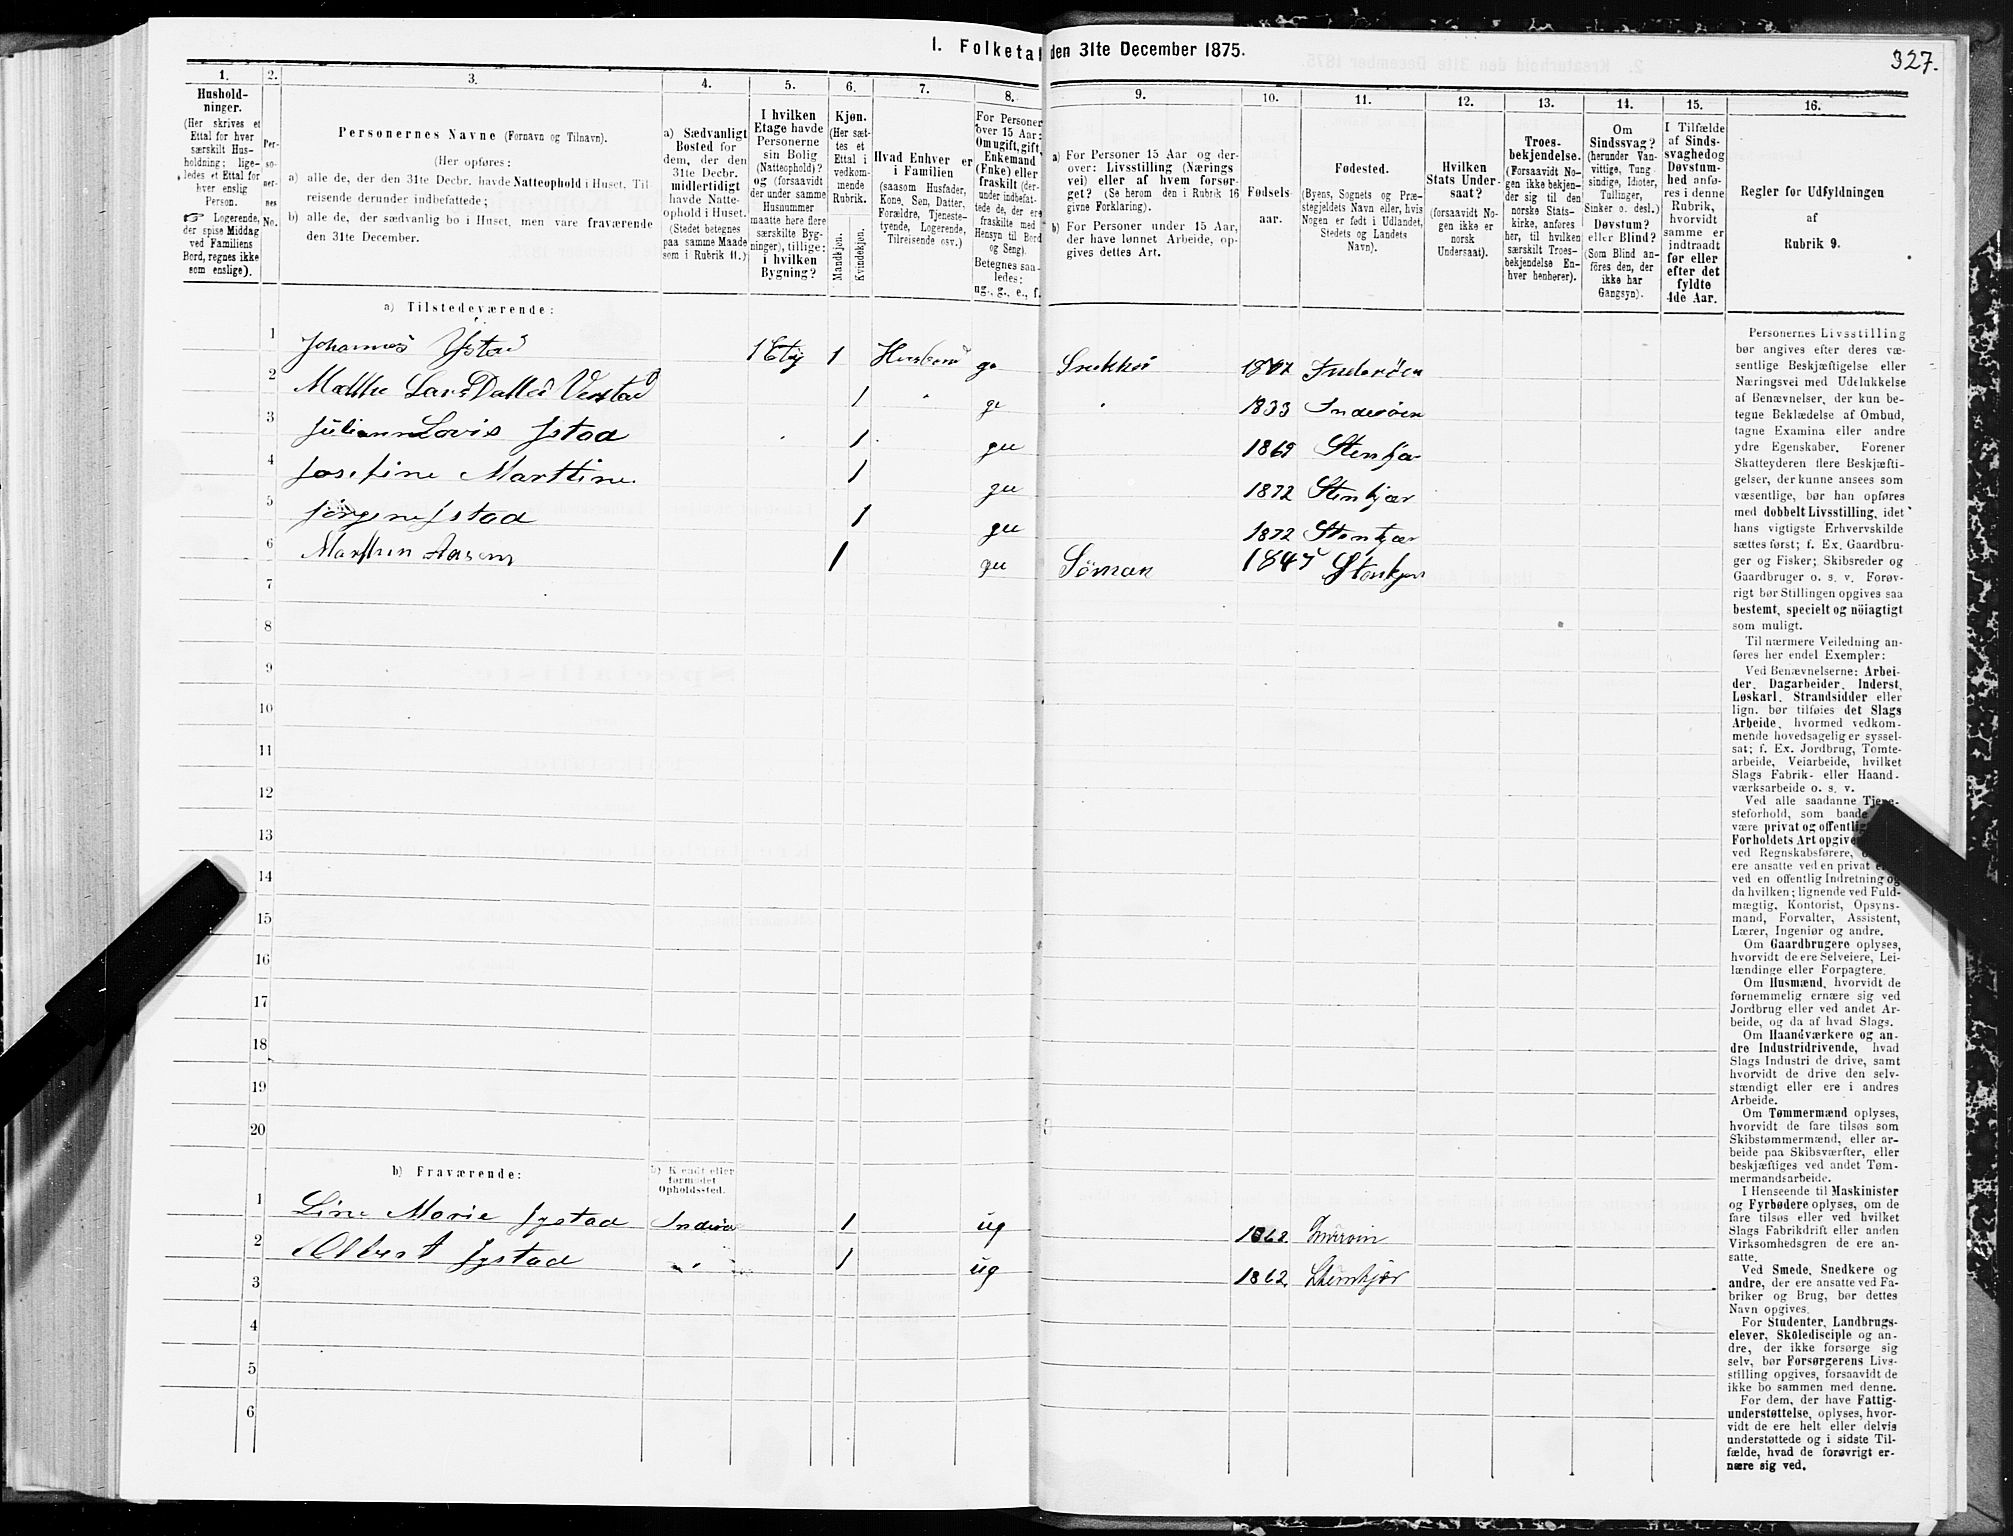 1. Folketal den 31te December 1875.
327.
1.
2.
3.
4.
5.
6.
7.
8.
9.
10.
11.
12.
13.
14.
15.
16.
Hushold-
ninger.
(Her skrives et
Ettal for hver
særskilt Hus-
holdning; lige-
ledes et Ettal for
hver enslig
Person.
☞ Logerende,
der spise Middag
ved Familiens
Bord, regnes ikke
som enslige).
Per-
so-
ner-
nes
No.
Personernes Navne (Fornavn og Tilnavn).
(Her opføres:
a) alle de, der den 31te Decbr. havde Natteophold i Huset, Til-
reisende derunder indbefattede;
b) alle de, der sædvanlig bo i Huset, men vare fraværende
den 31te December.
a) Sædvanligt
Bosted for
dem, der den
31te Decbr.
midlertidigt
havde Natte-
ophold i Huset.
(Stedet betegnes
paa samme Maade
som i Rubrik 11.)
I hvilken
Etage havde
Personerne
sin Bolig
(Natteophold)?
og (forsaavidt
der under samme
Husnummer
maatte høre flere
særskilte Byg-
ninger), tillige:
i hvilken
Bygning?
Kjøn.
(Her sæt-
tes et
Ettal i
vedkom-
mende
Rubrik.
Mandkjøn.
Kvindekjøn.
Hvad Enhver er
i Familien
(saasom Husfader,
Kone, Søn, Datter,
Forældre, Tjeneste-
tyende, Logerende,
Tilreisende osv.)
For Personer
over 15 Aar:
Om ugift, gift,
Enkemand
(Enke) eller
fraskilt (der-
under indbefat-
tede de, der ere
fraskilte med
Hensyn til Bord
og Seng).
Betegnes saa-
ledes:
ug., g., e., f.
a) For Personer 15 Aar og der-
over: Livsstilling (Nærings
vei) eller af hvem forsør-
get? (Se herom den i Rubrik 16
givne Forklaring).
b) For Personer under 15 Aar,
der have lønnet Arbeide, op-
gives dettes Art.
Fødsels-
aar.
Fødested.
(Byens, Sognets og Præ-
stegjeldets Navn eller, hvis
Nogen er født i Udlandet,
Stedets og Landets
Navn).
Hvilken
Stats Under-
saat?
(forsaavidt No-
gen ikke er
norsk
Undersaat).
Troes-
bekjendelse.
(Forsaavidt No-
gen ikke bekjen-
der sig til den
norske Stats-
kirke, anføres
her, til hvilken
særskilt Troes-
bekjendelse En-
hver henhører).
Om
Sindssvag?
(herunder Van-
vittige, Tung-
sindige, Idioter,
Tullinger,
Sinker o. desl.)
Døvstum?
eller Blind?
(Som Blind an-
føres den, der
ikke har
Gangsyn).
I Tilfælde
af Sinds-
svaghed og
Døvstum-
hed anfø-
res i denne
Rubrik,
hvorvidt
samme er
indtraadt
før eller
efter det
fyldte
4de Aar.
Regler for Udfyldningen
af
Rubrik 9.
a) Tilstedeværende:
1 Johannes Ystad 1 Etg 1 g. 1807
2 Lars Datter 1 g 1833 Inderøen
3 Lovis Ystad 1 1869
4 Josefine Marttine 1 1872 Stenkjær
5 Jørgen Ystad 1 1872 Stenkjær
6 1 1847 Stenkjær
7
8
9
10
11
12
13
14
15
16
17
18
19
20
b) Fraværende:
b) Kjendt eller
formodet
Opholdssted.
1 Line Marie Jystad 1 ug 1868
2 Albert Jystad 1 ug 1862 Stenkjær
3
4
5
6
Personernes Livsstilling
bør angives efter deres væ-
sentlige Beskjæftigelse eller
Næringsvei med Udelukkelse
af Benævnelser, der kun be-
tegne Beklædelse af Ombud,
tagne Examina eller andre
ydre Egenskaber. Forener
Skatteyderen flere Beskjæfti-
gelser, der kunne ansees som
væsentlige, bør han opføres
med dobbelt Livsstilling, idet
hans vigtigste Erhvervskilde
sættes først; f. Ex. Gaardbru-
ger og Fisker; Skibsreder og
Gaardbruger o. s. v. Forøv-
rigt bør Stillingen opgives saa
bestemt, specielt og nöiagtigt
som muligt.
Til nærmere Veiledning an-
føres her endel Exempler:
Ved Benævnelserne: Arbei-
der, Dagarbeider, Inderst,
Løskarl, Strandsidder eller
lign. bør tilføies det Slags
Arbeide, hvormed vedkom-
mende hovedsagelig er syssel-
sat; f. Ex. Jordbrug, Tomte-
arbeide, Veiarbeide, hvilket
Slags Fabrik- eller Haand-
værksarbeide o. s. v.
Ved alle saadanne Tjene-
steforhold, som baade
være privat og offentlig
Forholdets Art opgives
ved Regnskabsførere,
ere ansatte ved en privat
ved en offentlig Indretning og
da hvilken; lignende ved Fuld-
mægtig, Kontorist, Opsyns-
mand, Forvalter, Assistent,
Lærer, Ingeniør og andre.
Om Gaardbrugere oplyses,
hvorvidt de ere Selveiere, Lei-
lændinge eller Forpagtere.
Om Husmænd, hvorvidt de
førnemmelig ernære sig ved
Jordbrug eller ved andet Ar-
beide, og da af hvad Slags.
Om Haandværkere og an-
dre Industridrivende, hvad
Slags Industri de drive, samt
hvorvidt de drive den selv-
stændigt eller ere i andres
Arbeide.
Om Tømmermænd oplyses,
hvorvidt de fare tilsøs som
Skibstømmermænd, eller ar-
beide paa Skibsværfter, eller
beskjæftiges ved andet Tøm-
mermandsarbeide.
I Henseende til Maskinister
og Fyrbødere oplyses, om de
fare tilsøs eller ved hvilket
Slags Fabrikdrift eller anden
Virksomhedsgren de ere an-
satte.
Ved Smede, Snedkere og
andre, der ere ansatte ved Fa-
briker og Brug, bør dettes
Navn opgives.
For Studenter, Landbrugs-
elever, Skoledisciple og an-
dre, der ikke forsørge sig
selv, bør Forsørgerens Livs-
stilling opgives, forsaavidt de
ikke bo sammen med denne.
For dem, der have Fattig-
understøttelse, oplyses, hvor-
vidt de ere helt eller delvis
understøttede og i sidste Til-
fælde, hvad de forøvrigt er-
nære sig ved.